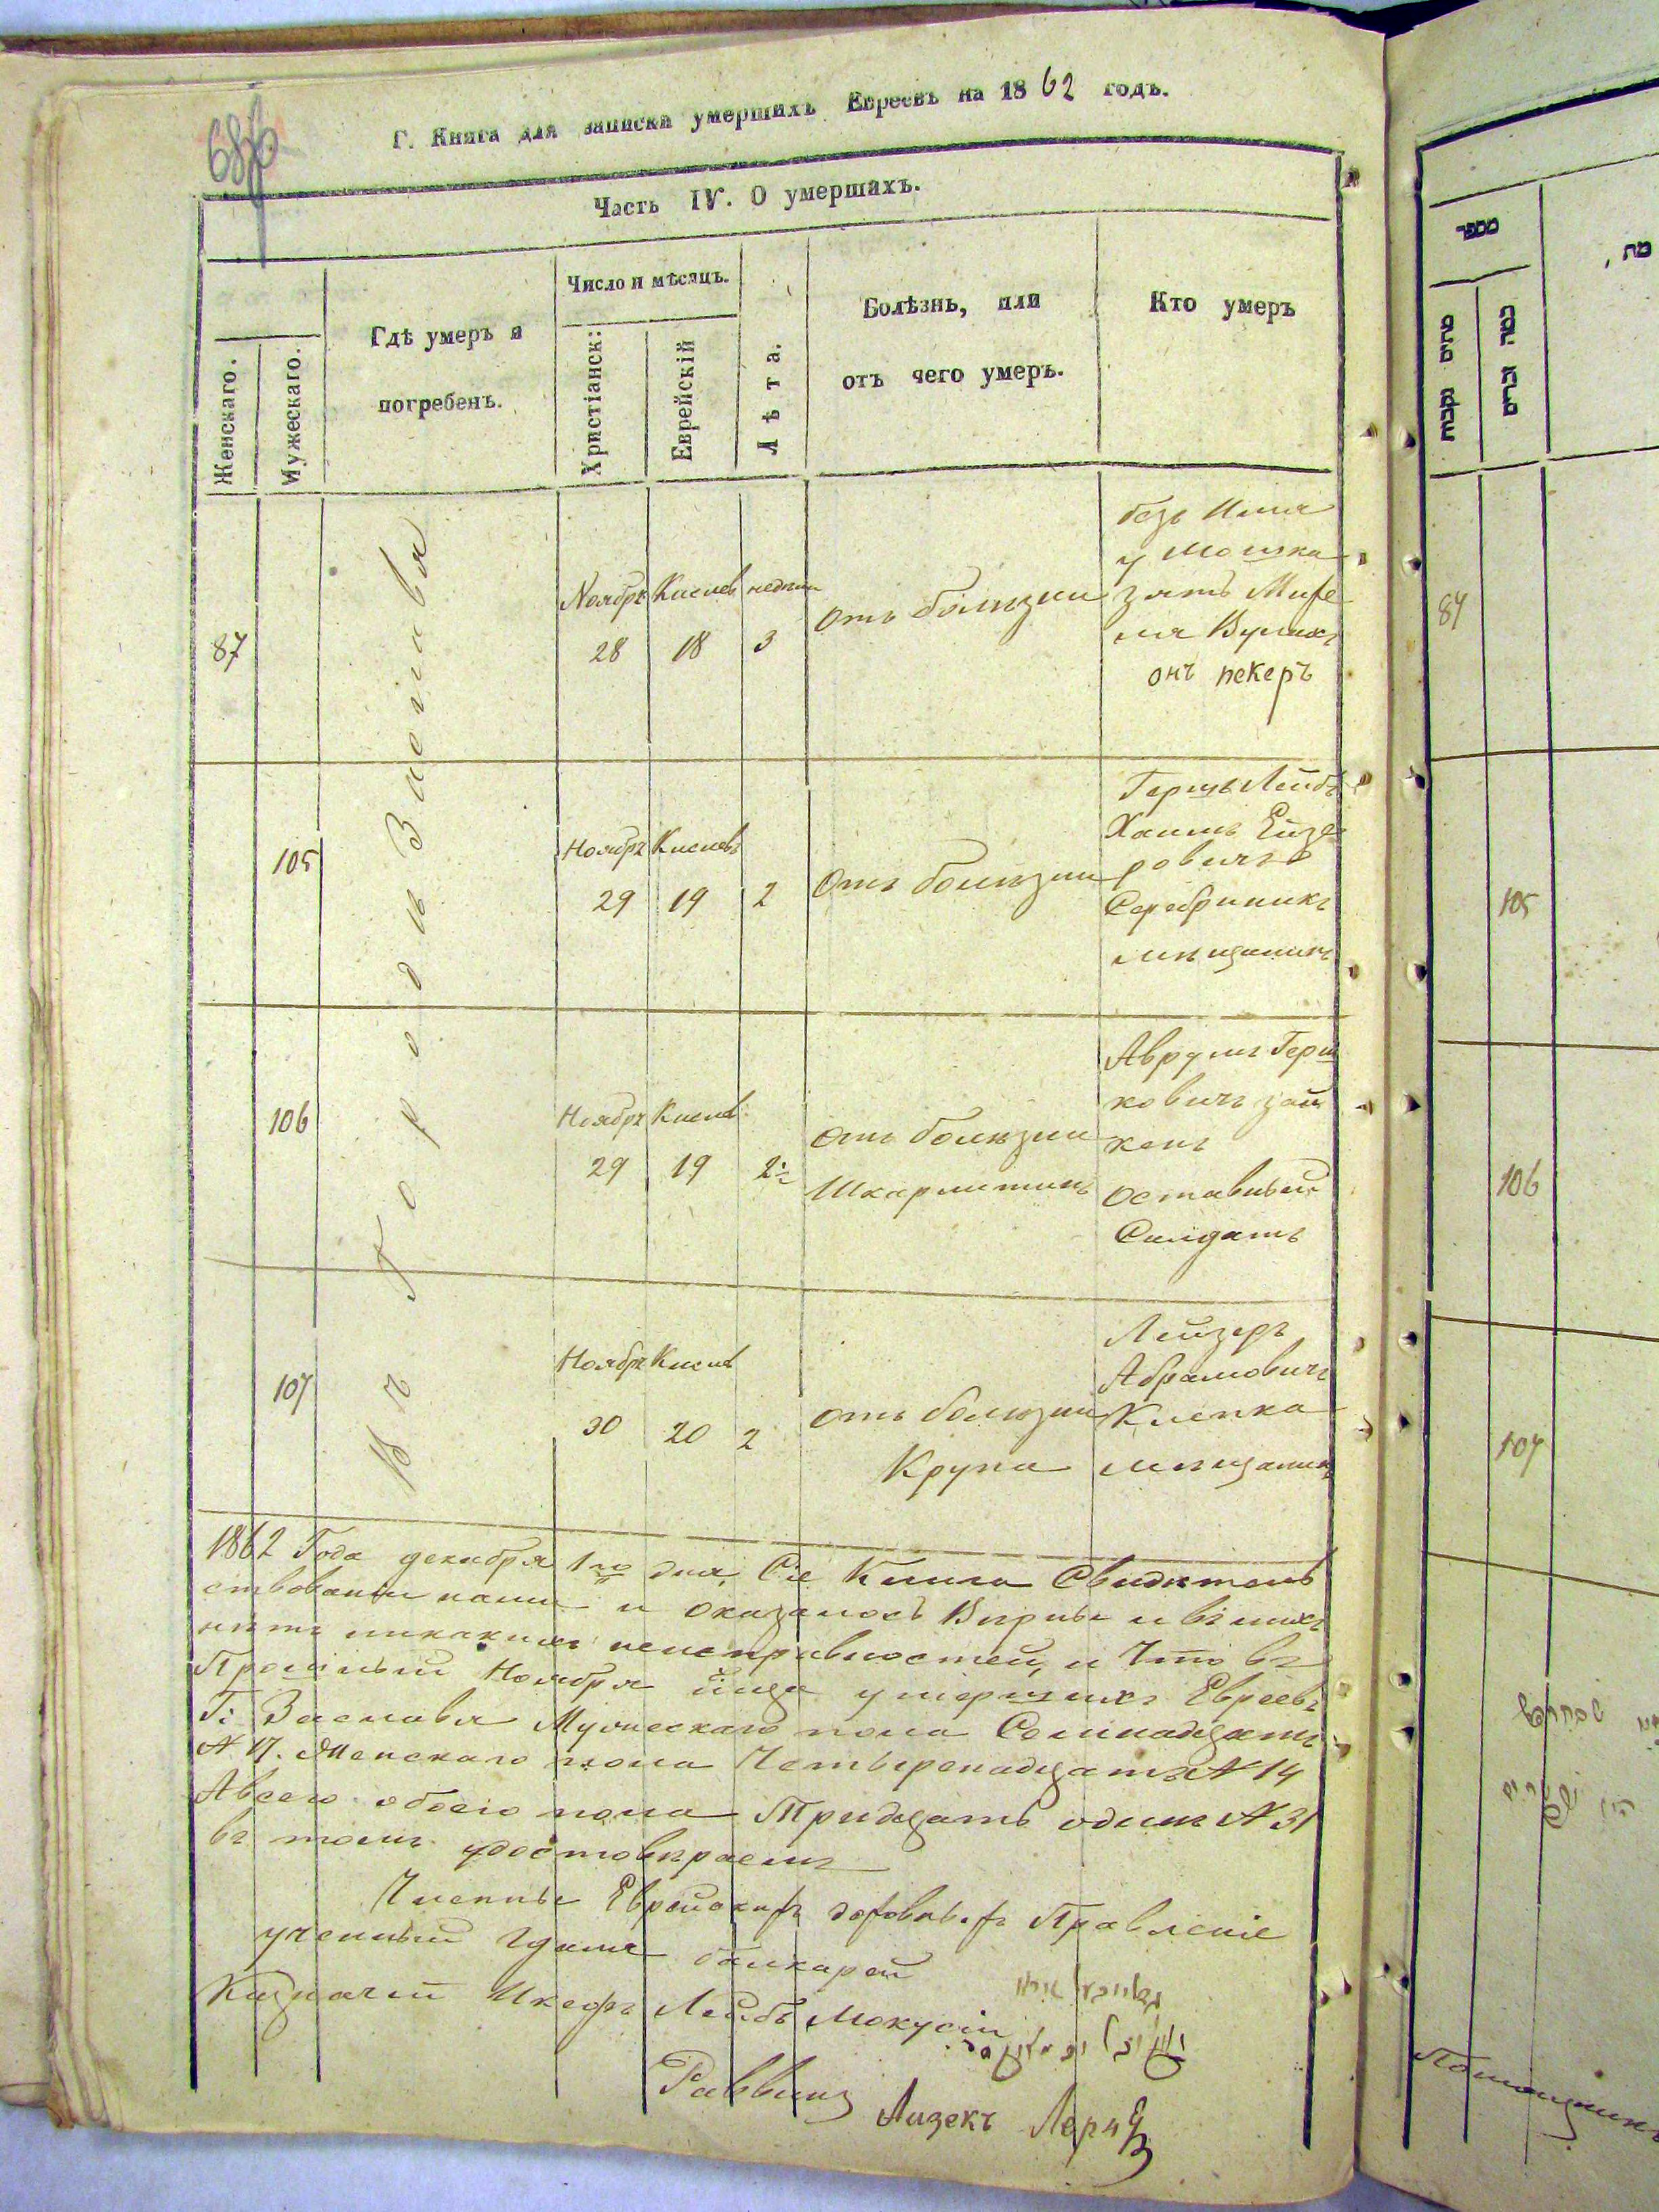 Г. Книга для записки умершихъ Евреевъ на 1862 годъ.
Часть IV. О умершахъ.
Женскаго.
Мужескаго.
Гдѣ умеръ и
погребенъ.
Число и мѣсяцъ.
Христіанск:
Еврейскій
Лѣта.
Болѣзнь, или
отъ чего умеръ.
Кто умеръ
Въ Городѣ Заславля
87
Ноябръ Кислев недѣли
28 18 3
отъ болѣзни
безъ Имя
у Мошка
зять
онъ пекеръ
105
Ноябръ Кислевъ
29 19 2
отъ болѣзни
Гершъ Лейбъ
Хаимъ Ейзе
ровичъ
Серебриникъ
мѣщанинъ
106
Ноябръ Кислев
29 19 2½
отъ болѣзни
Шкарлитинъ
Аврумъ Герш
ковичъ Зай
кенъ
оставный
Салдатъ
107
Ноябръ Кислев
30 20 2
отъ болѣзни
Крупа
Лейзеръ
Абрамовичъ
Клепка
мѣщанинъ
1862 Года декабря 1го дня, Сіе Книга Свидѣтель
ствовани нами и оказалось Вѣрны и въ нихъ
нѣтъ никакихъ неисправностей, и Что въ
Прошлый Ноября умершихъ Евреевъ
Г: Заславля Мужескаго пола Семнадцать
№ 17. Женскаго пола Четыренадцать № 14
Авсего обоего пола Тридцать одинъ № 31
въ томъ удостовѣраемъ
Члепны Правленіе
ученный
Казначей Лейбъ Мокусій
Раввинъ
Лизекъ Лернъ
מספר
מתים נקבות
כמה זכרים
מת,
87
105
106
107